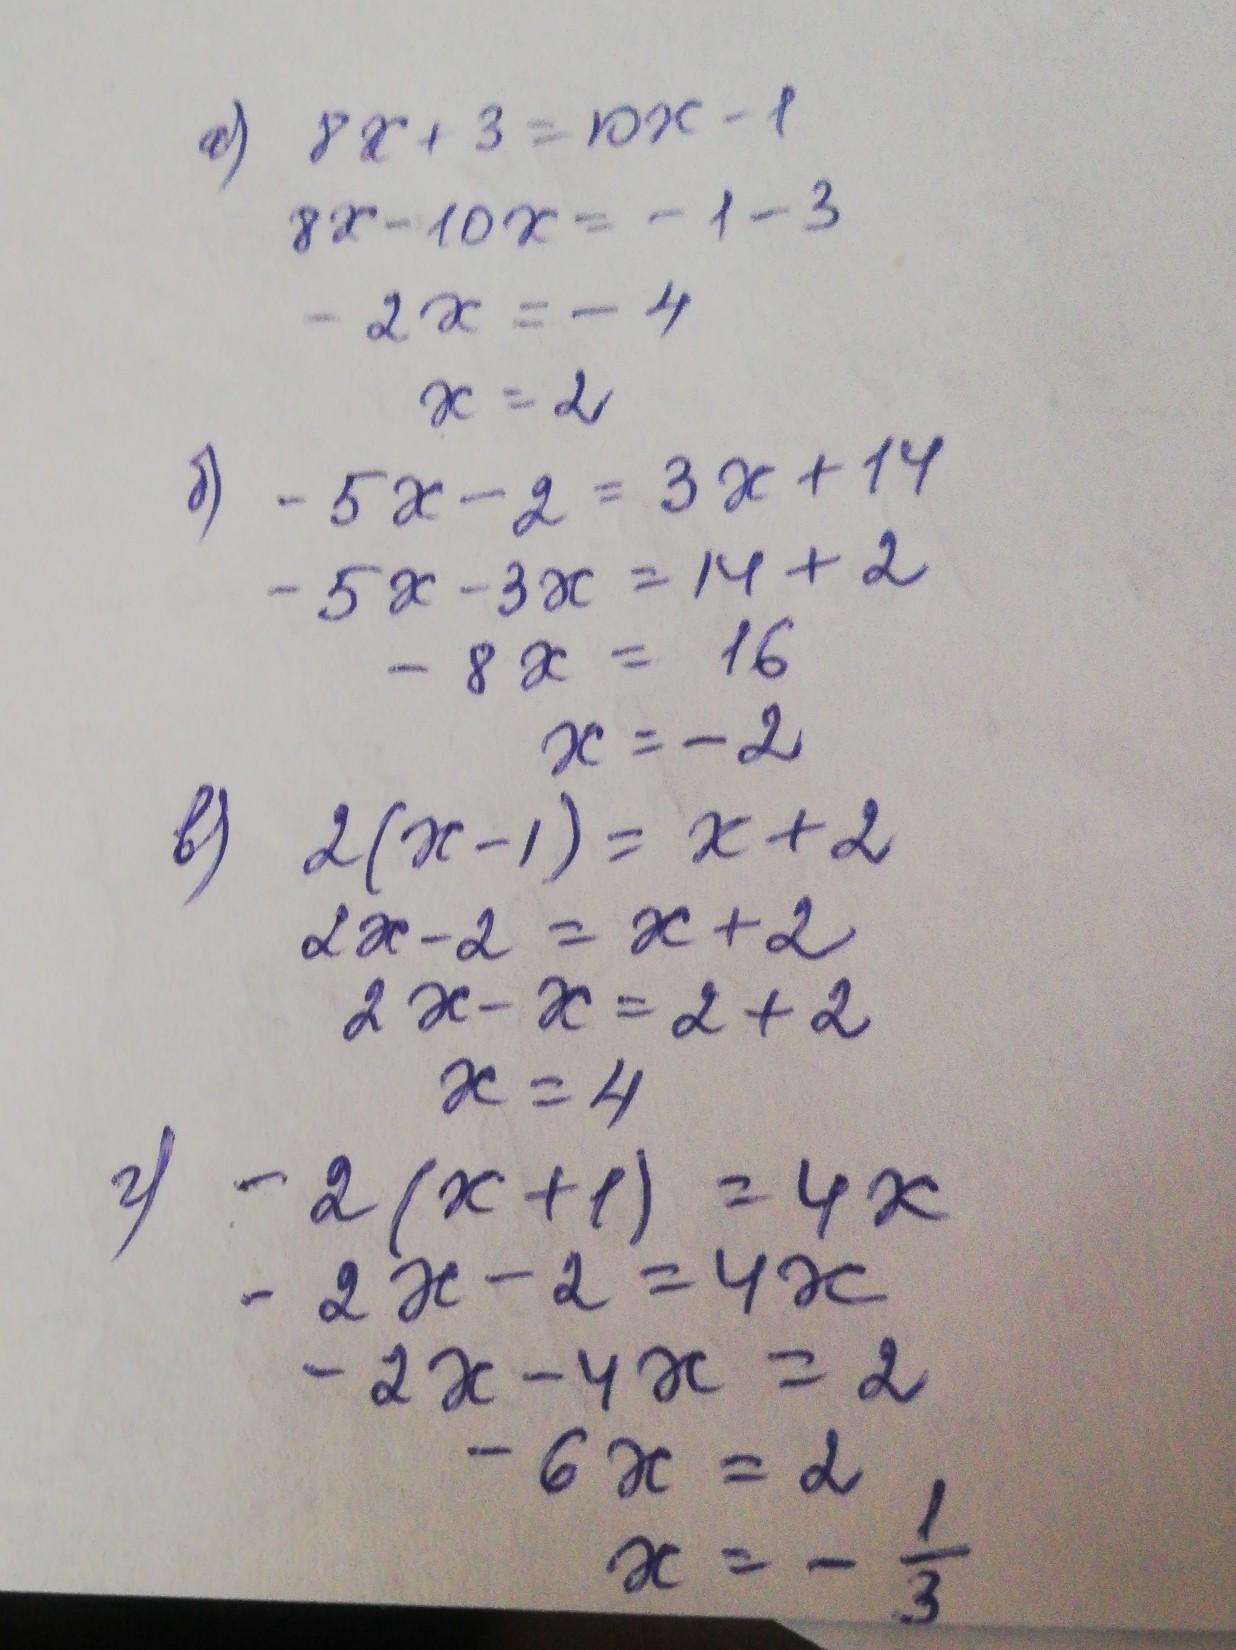 а) 8x + 3 = 10x - 1
8x - 10x = - 1 - 3
- 2x = - 4
x = 2
б) - 5x - 2 = 3x + 14
- 5x - 3x = 14 + 2
- 8x = 16
x = - 2
в) 2(x - 1) = x + 2
2x - 2 = x + 2
2x - x = 2 + 2
x = 4
г) - 2(x + 1) = 4x
- 2x - 2 = 4x
- 2x - 4x = 2
- 6x = 2
x = - 1/3